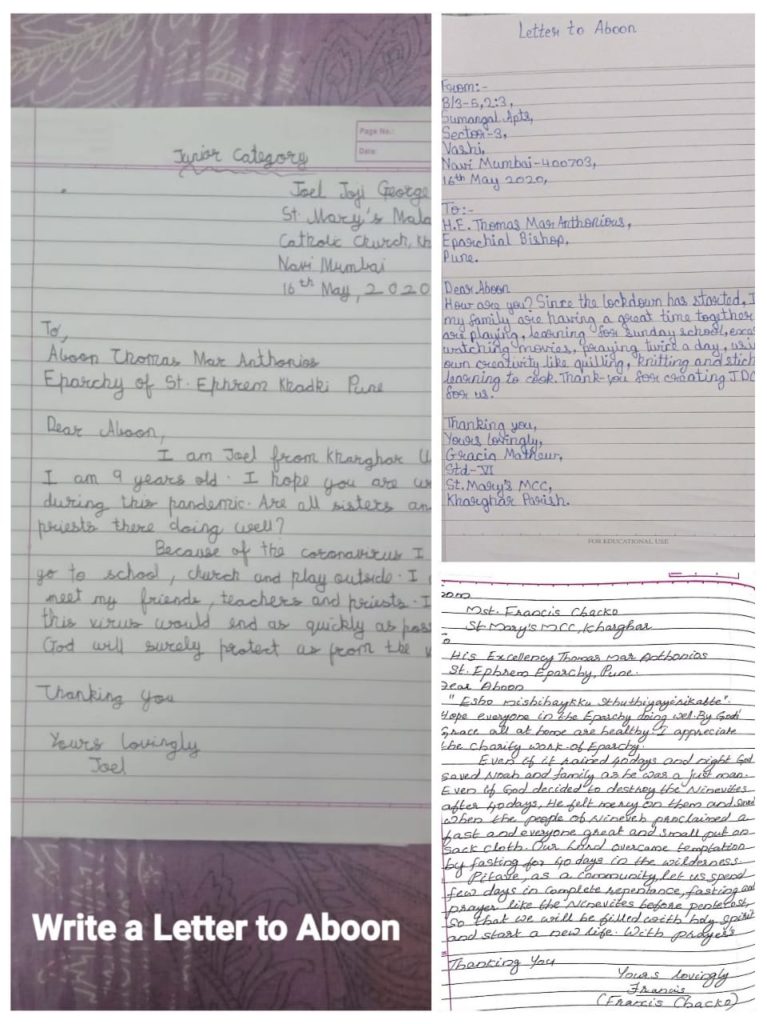 Page No.:
Date:
Junior Category
Joel Joji George
St. Mary's Mala
Catholic Church, Kh
Navi Mumbai
16th May, 2020
To,
Aboon Thomas Mar Anthonios
Eparchy of St. Ephrem Khadki Pune
Dear Aboon,
I am Joel from Kharghar
I am 9 years old. I hope you are
during this pandemic. Are all sisters an
priests there doing well?
Because of the coronavirus I
go to school, church and play outside. I
meet my friends, teachers and priests. I
this virus would end as quickly as pos
God will surely protect us from the v
Thanking you
Yours lovingly
Joel
Write a Letter to Aboon
Letter to Aboon
From:-
B/3-5,2:3,
Sumangal Apts,
Sector-3,
Vashi,
Navi Mumbai-400703,
16th May 2020,
To:-
H.E. Thomas Mar Anthonious,
Eparchial Bishop,
Pune.
Dear Aboon
How are you? Since the lockdown has started, I
my family are having a great time together
are playing, learning for sunday school,
watching movies, praying twice a day, usin
own creativity like quilling, knitting and stich
learning to cook. Thank-you for creating JDC
for us.
Thanking you,
Yours lovingly,
Gracia Mathew,
Std-VI
St. Mary's MCC,
Kharghar Parish.
FOR EDUCATIONAL USE
Mst. Francis Chacko
St Mary's MCC, Kharghar
His Excellency Thomas Mar Anthonios
St. Ephrem Eparchy, Pune.
Dear Aboon
"Esho mishihaykku Sthuthiyayirikatte".
Hope everyone in the Eparchy doing wel. By God's
Grace all at home are healthy. I appreciate
the charity work of Eparchy.
Even if it rained 40days and night God
saved Noah and family as he was a just man.
Even if God decided to destroy the Ninevites
after 40days, He felt mercy on them and
when the people of Nineveh proclaimed a
fast and everyone great and small put on
sack cloth. Our Lord overcame temptation
by fasting for 40 days in the wilderness
Pitave, as a community, let us spend
few days in complete repentance, fasting and
prayer like the Ninevites before pentecost,
so that we will be filled with holy spirit
and start a new life. With prayers
Thanking You
Yours lovingly
Francis
(Francis Chacko)